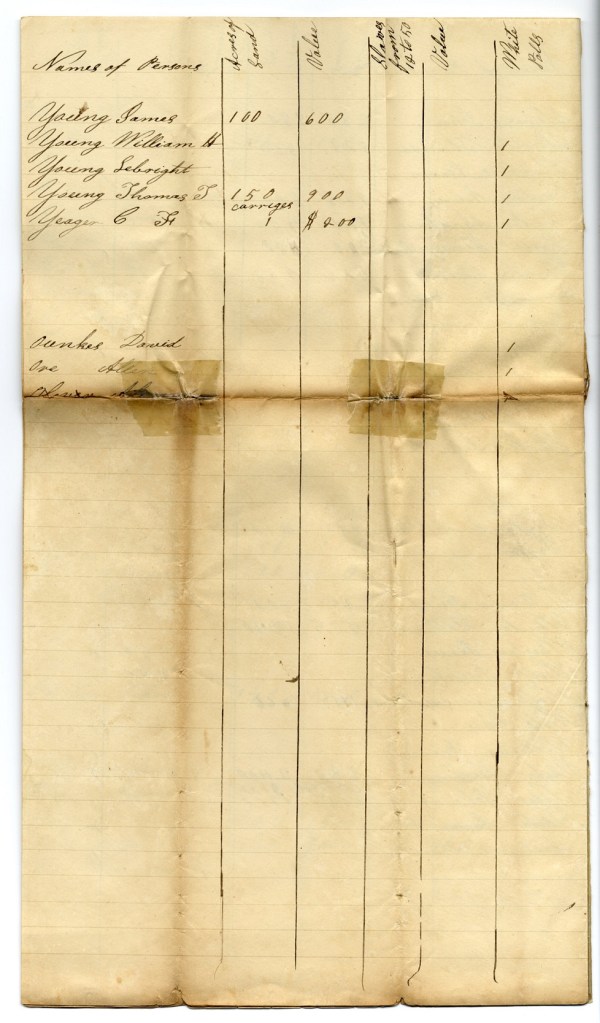 Names of Persons Acres of Land Value Slaves from 12 to 50 Value White Polls
Young James 100 600
Young William H 1
Young Sebright 1
Young Thomas T 150 900 1
carriges
Yeager C F 1 $200 1
Ounkes David 1
Ore Allen 1
1